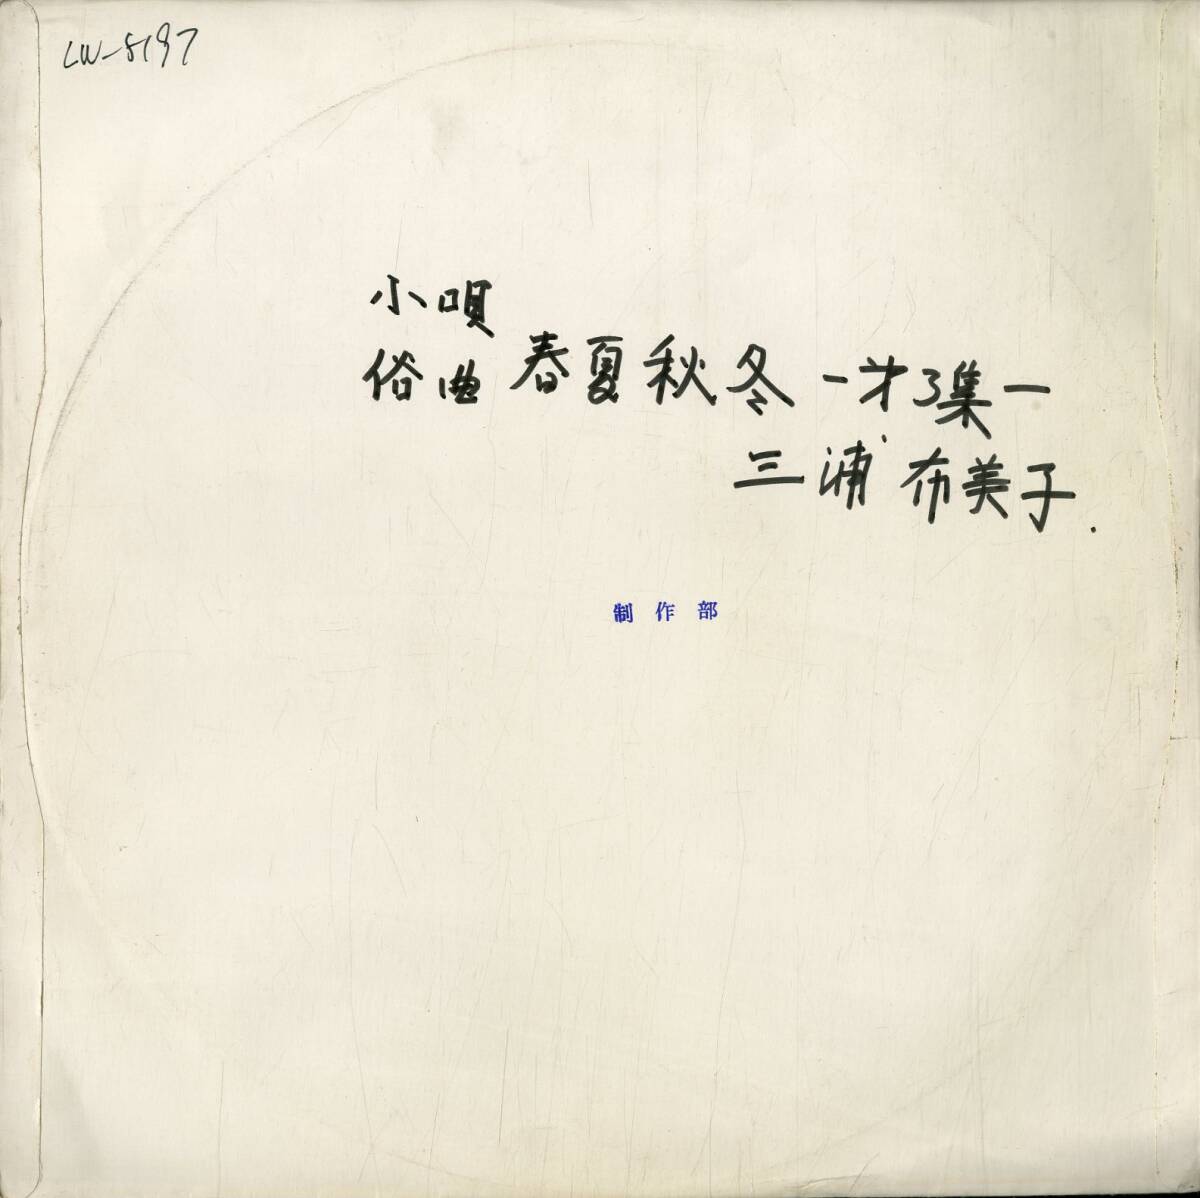 LW-5197
小唄
俗曲 春夏秋冬 ー才3集ー
三浦 布美子.
制作部